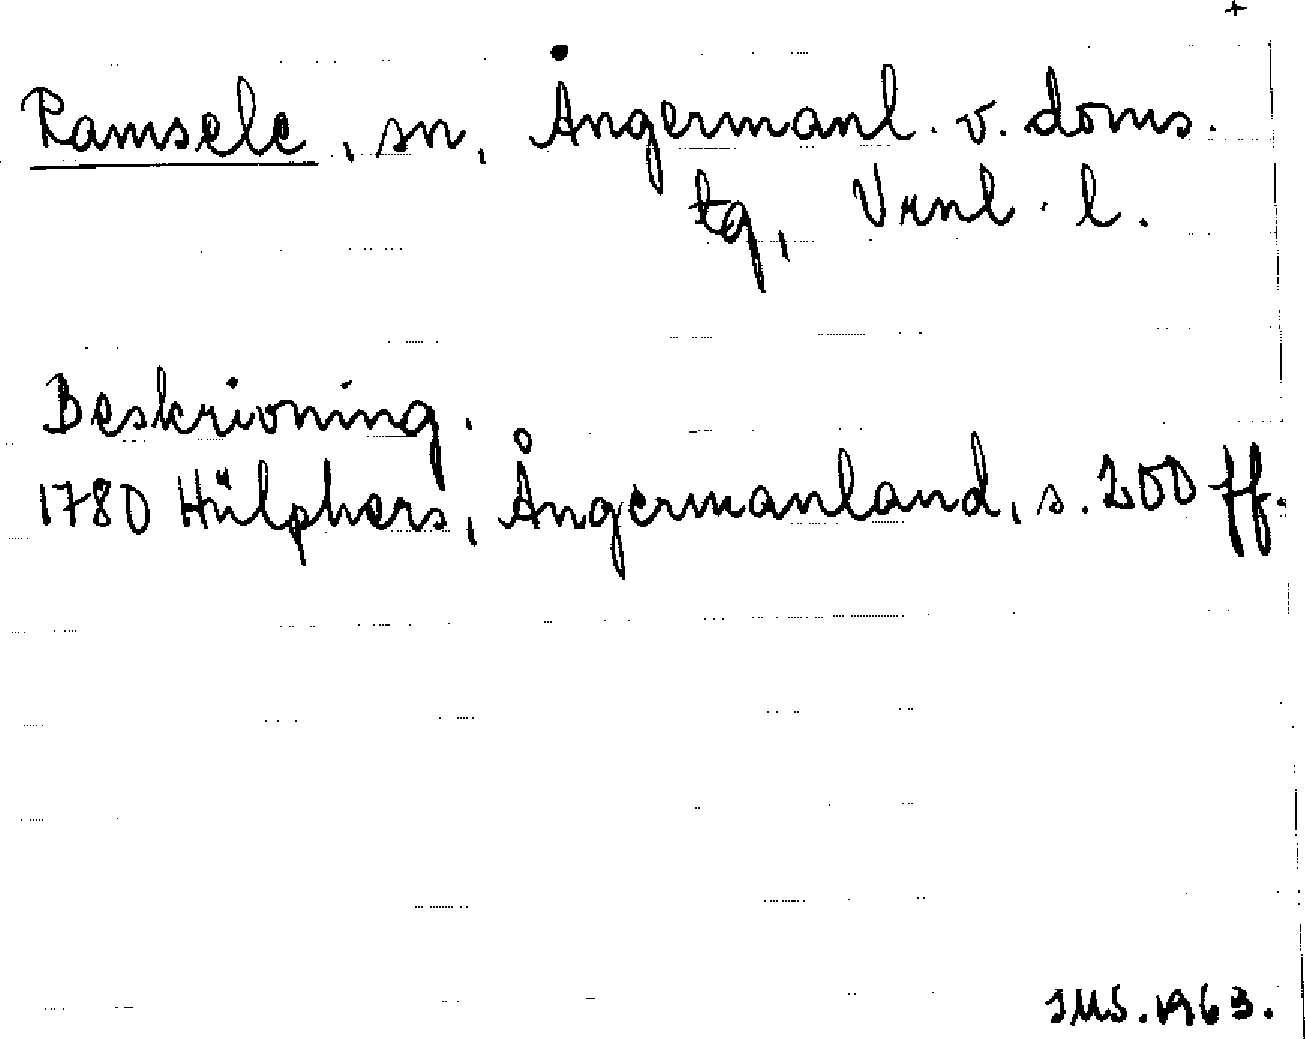 +
Ramsele, sn, Ångermanl. v. doms.
tg, Vrnl. l.
Beskrivning.
1780 Hülphers, Ångermanland, s. 200 ff.
JMS. 1963.